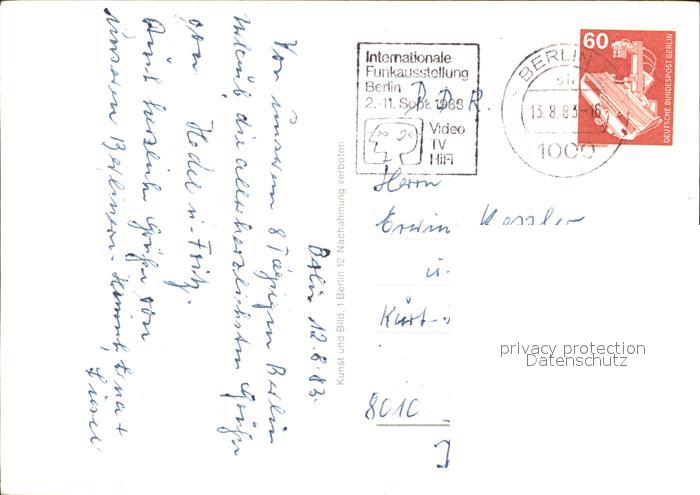 Berlin 12.8.83.
Von unserem 8 Tägigen Berlin
Urlaub die allerherzlichsten Grüße
von Hedel u. Fritz.
Auch herzliche Grüße von
unseren Berlinern
Kunst und Bild, 1 Berlin 12 Nachahmung verboten
Internationale
Funkausstellung
Berlin
2.-11. Sept. 1983
Video
TV
HiFi
BERLIN
13.8.83-16
1000
60
DEUTSCHE BUNDESPOST BERLIN
B D R.
Herrn
Erwin Kessler
u.
Kurt-
8010
privacy protection
Datenschutz